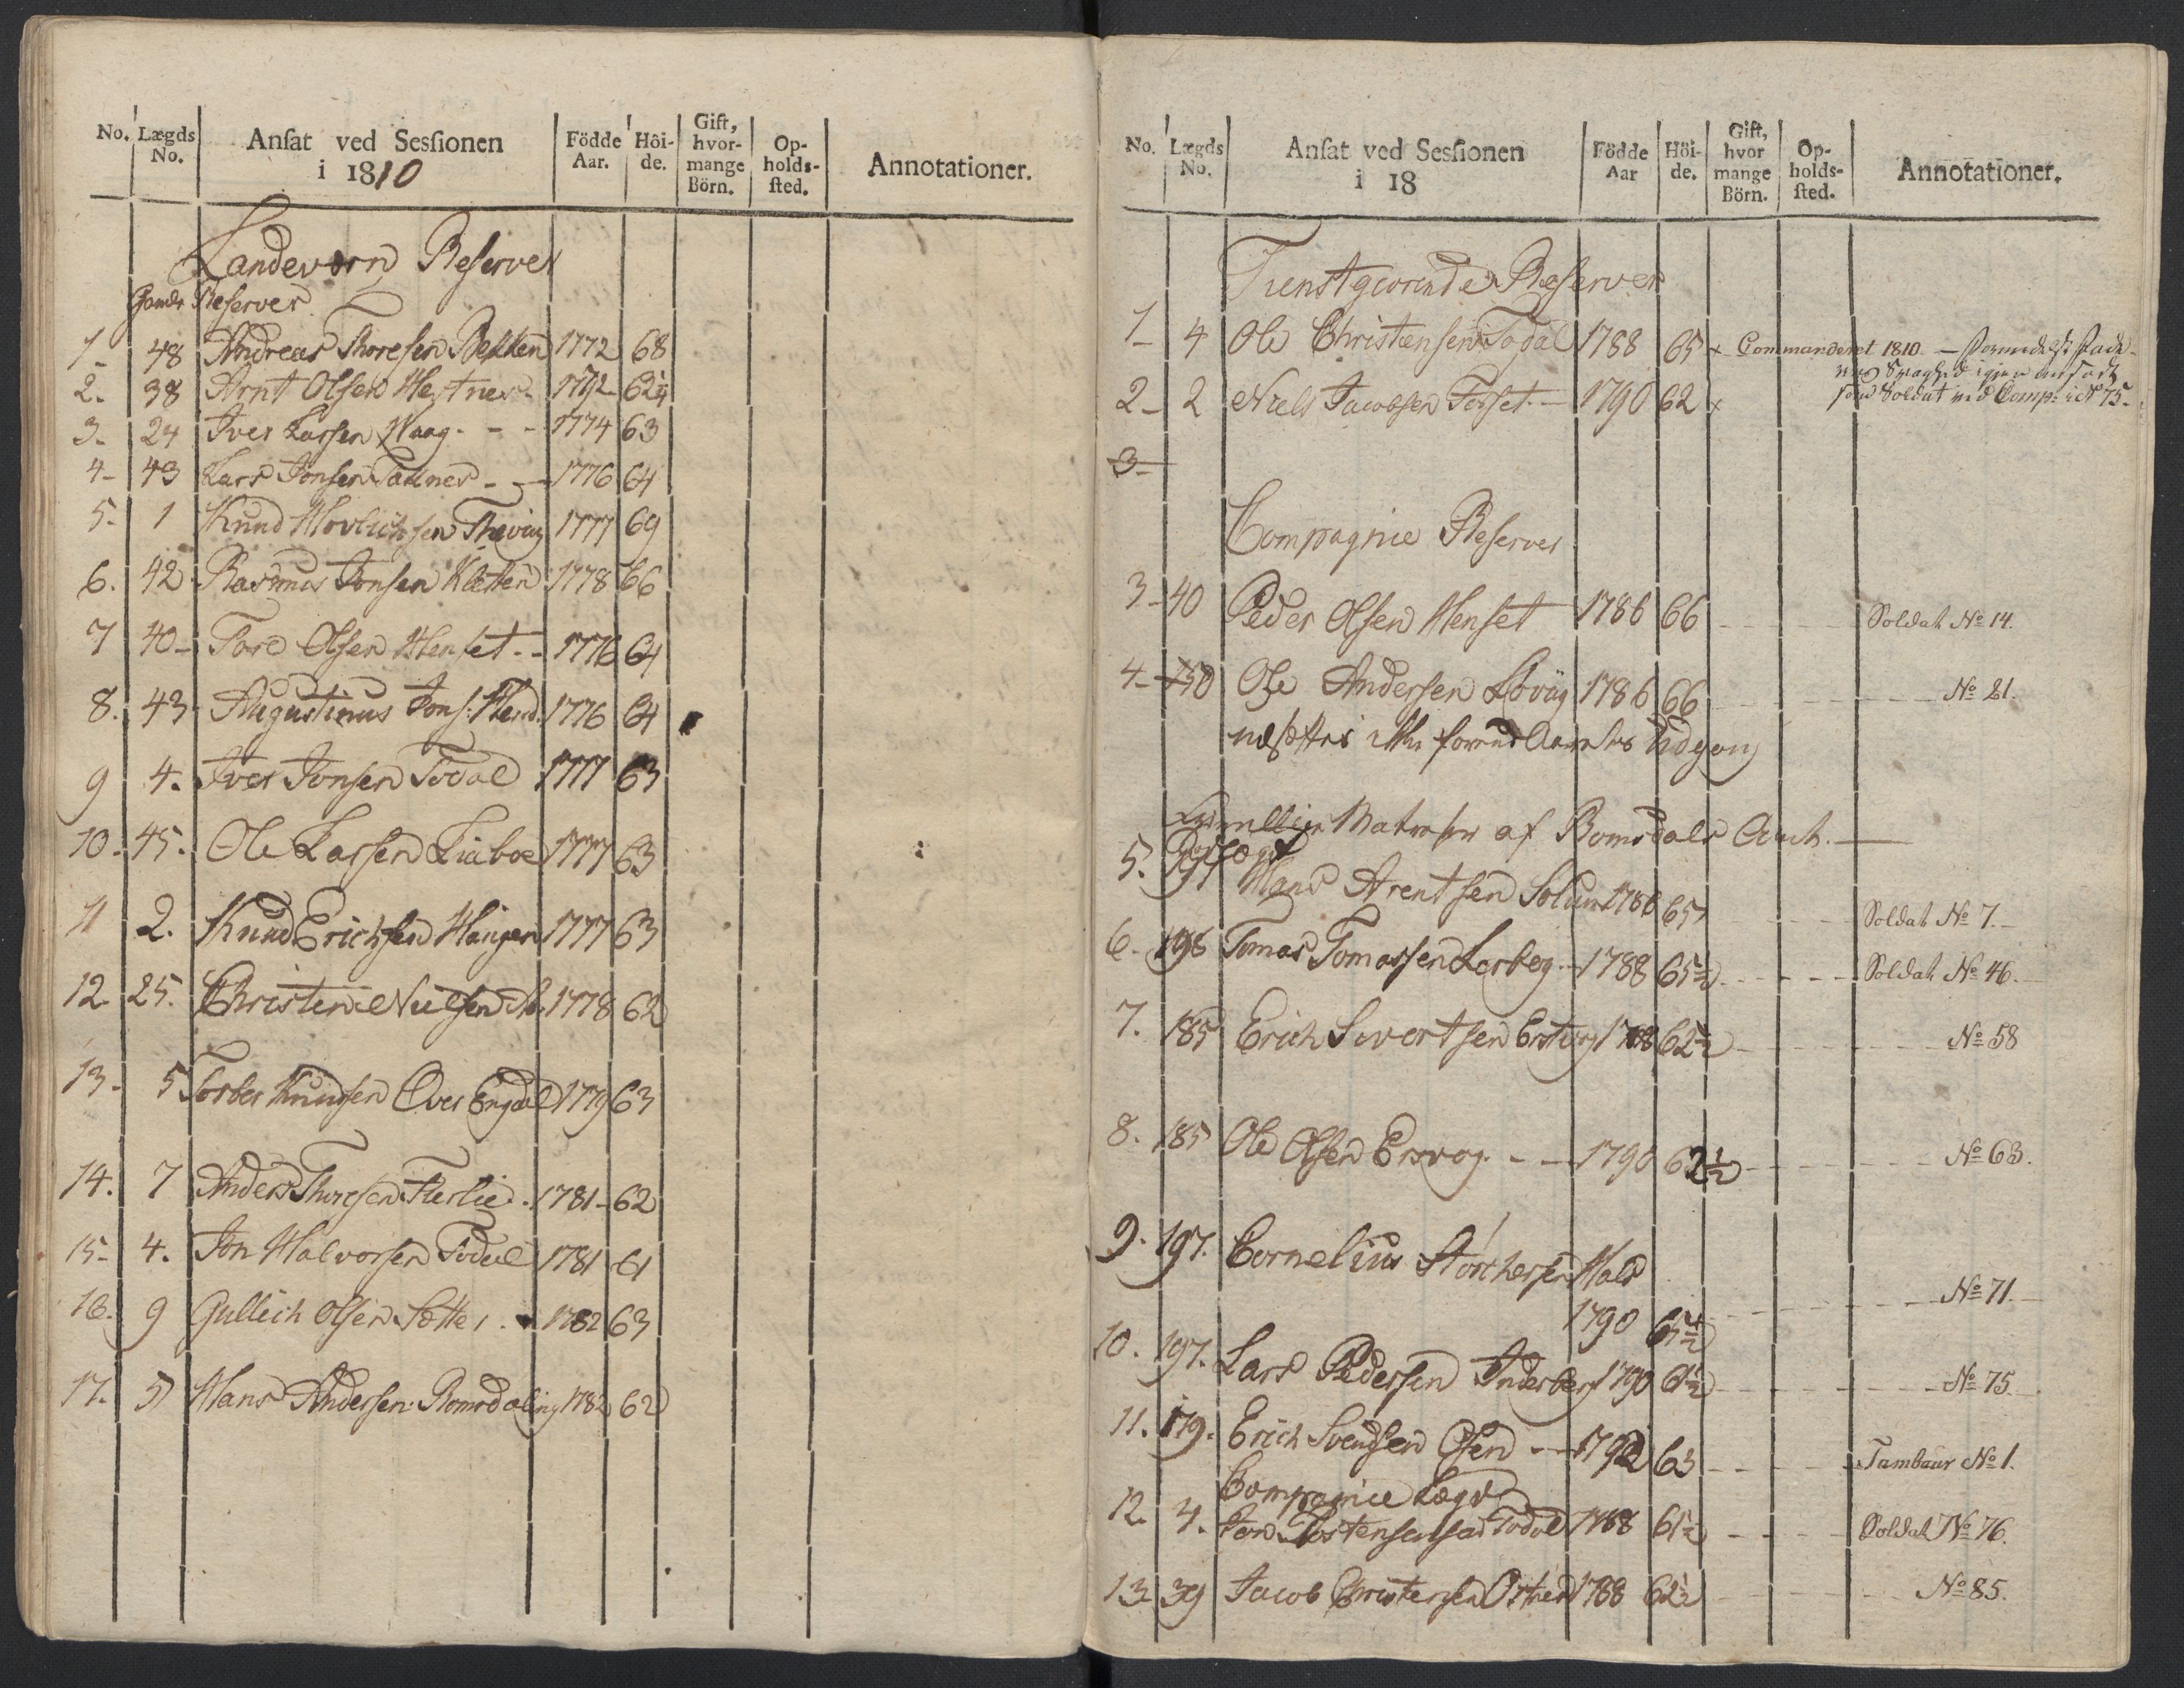 No. Lægds No. Ansat ved Sessionen i 1810 Födde Aar. Höi-de. Gift, hvor-mange Börn. Op-holds-sted. Annotationer.
Landeværn Reserver
Reserver
1- 48 Andreas Thoresen Bekken 1772 68
2. 38 Arnt Olsen Hestnes 1772 62 1/4
3. 24 Iver Larsen Waag - - - 1774 63
4- 43 Lars Jonsen - - 1776 64
5. 1 Knud 1777 69
6. 42 Rasmus Jonsen Kletten 1778 66
7 40- Tore Olsen Henset - - 1776 64
8. 43 Augustinus Jons: 1776 64
9 4. Iver Jonsen Todal 1777 63
10. 45. Ole Larsen Liaboe 1777 63
11 2. Knud Erichsen Hangen 1777 63
12. 25. Christen Nielsen 1778 62
13- 5 Torber Knudsen Over Engdal 1779 63
14. 7 Anders Thoresen 1781- 62
15- 4. Jon Halvorsen Todal 1781 61
16. 9 Gullich Olsen Sætter 1782 63
17. 5 Hans Andersen Romdaling 1782 62
No. Lægds No. Ansat ved Sessionen i 18 Födde Aar Höi-de. Gift, hvor mange Börn. Op-holds-sted. Annotationer.
Tienstgiørende Reserver
1- 4 Ole Christensen Todal 1788 65 x Commanderet 1810. -
igjen ansadt
som Soldat ved Comp: i No 75-
2- 2 Niels Jacobsen Torset - 1790 62 x
3-
Compagnie Reserver
3- 40 Peder Olsen Henset 1786 66 Soldat No 14.
4- 30 Ole Andersen 1786 66 No 21.
ikke
af Romsdals Amt.
5. 197 Hans Arentsen Solum 1786 65 Soldat No 7.-
6- 198 Tomas Tomassen 1788 65 1/2 Soldat No 46.
7. 185 Erich Sivertsen 1788 62 1/2 No 58
8. 185 Ole Olsen Eisvog - - 1790 62 1/2 No 63.
9. 197. Cornelius Hals
1790 65 1/2 No 71.
10. 197. Lars Pedersen 1790 61 1/2 No 75.
11. 179. Erich Svendsen Osen - 1792 63 Tambour No 1.
Compagnie Lægd
12. 4. Jon Todal 1788 61 1/2 Soldat No 76.
13. 39 Jacob Christensen 1788 62 1/2 No 85.